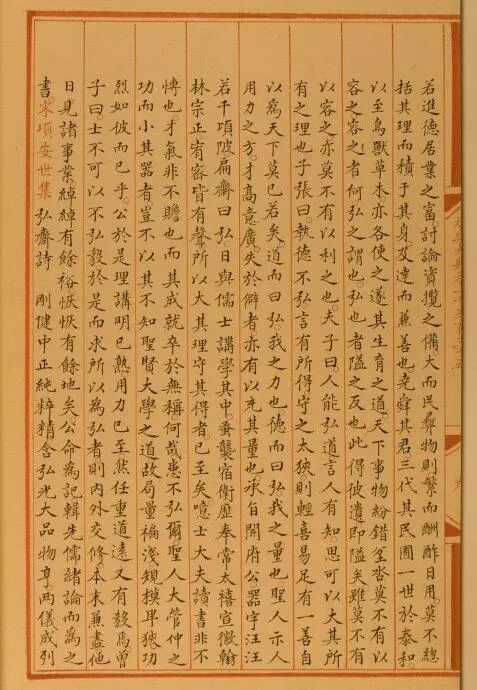 若進德居業之富討論資攬之備大而民彛物則繁而酬酢日用莫不總
括其理而積于其身及達而兼善也堯舜其君三代其民囿一世於泰和
以至鳥獸草木亦各使之遂其生育之道天下事物紛錯坌沓莫不有以
容之容之者何弘之謂也弘也者隘之反也此得彼遺即隘矣雖莫不有
以容之亦莫不有以利之也夫子曰人能弘道言人有知思可以大其所
有之理也子張曰執德不弘言有所得守之太狹則輕喜易足有一善自
以為天下莫已若矣道而曰弘我之力也德而曰弘我之量也聖人示人
用力之方才高意廣失於僻者亦有以充其量也承自開府公器宇汪汪
若千頃陂扁齋曰弘日與儒士講學其中蚤襲宿衛歷奉常太禧宣徽翰
林宗正宥容皆有聲所以大其理守其得者已至矣噫士大夫讀書非不
慱也才氣非不贍也而其成就卒於無稱何哉患不弘爾聖人大管仲之
功而小其器者豈不以其不知聖賢大學之道故局量褊淺規模卑狹功
烈如彼而已乎公於是理講明已熟用力已至然任重道遠又有毅焉曾
子曰士不可以不弘毅於是而求所以為弘者則内外交修本末兼盡他
日見諸事業綽綽有餘裕恢恢有餘地矣公命為記輯先儒緒論而為之
書宋項安世集 弘齋詩 剛健中正純粹精含弘光大品物亨兩儀成列